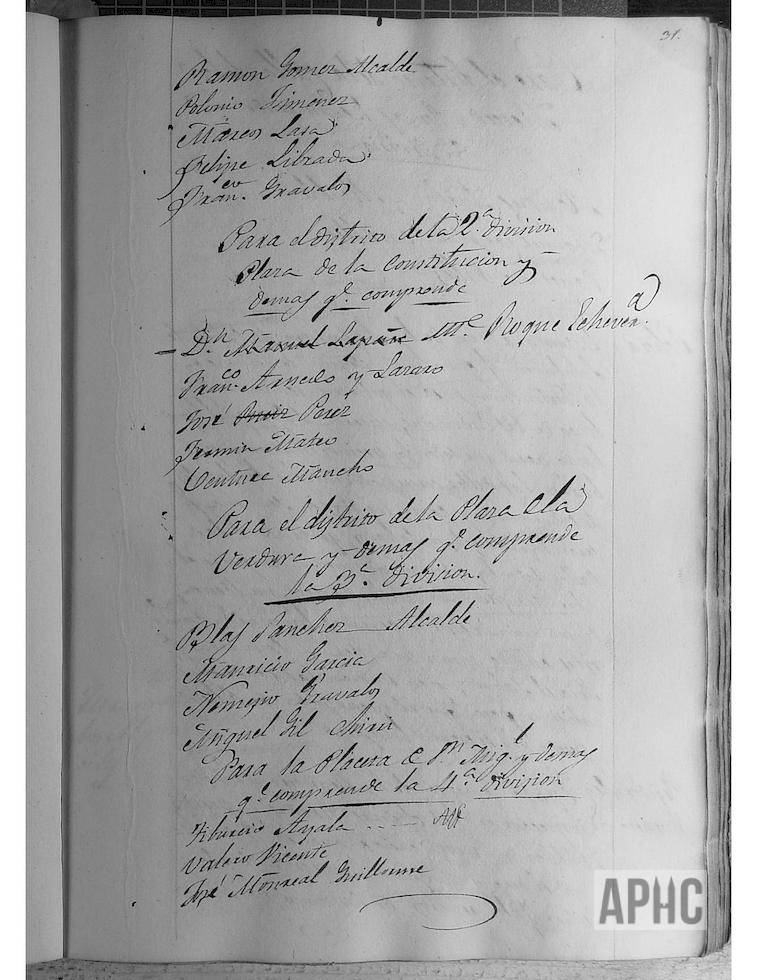 31.
Ramon Gomez Alcalde
Polonio Ximenez
Marcos Lasa
Felipe Librada
Fran.co Gravalos
Para el distrito de la 2.a division
Plaza de la Constitucion y
demas q.e comprende
D.n Manuel Roque Echeverr.a
Fran.co Arnedo y Lazaro
José Ruiz Perez
Fermin Mateo
Ventura Mancho
Para el distrito de la Plaza de la
Verdura y demas q.e comprende
la 3.a division.
Blas Sanchez Alcalde
Mauricio Garcia
Nemesio Gravalos
Miguel Gil
Para la Placeta de S.n Mig.l y demas
q.e comprende la 4.a division
Tiburcio Ayala
Valero Vicente
José Monreal Guillorme
APHC